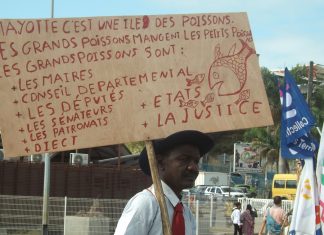 MAYOTTE C'EST UNE ILE DES POISSONS.
LES GRANDS POISSONS MANGENT LES PETITS POISSONS
LES GRANDS POISSONS SONT :
+ LES MAIRES
+ CONSEIL DEPARTEMENTAL
+ LES DÉPUTÉS
+ LES SÉNATEURS
+ LES PATRONATS
+ DIECT
+ ETATS
+ LA JUSTICE
Collect